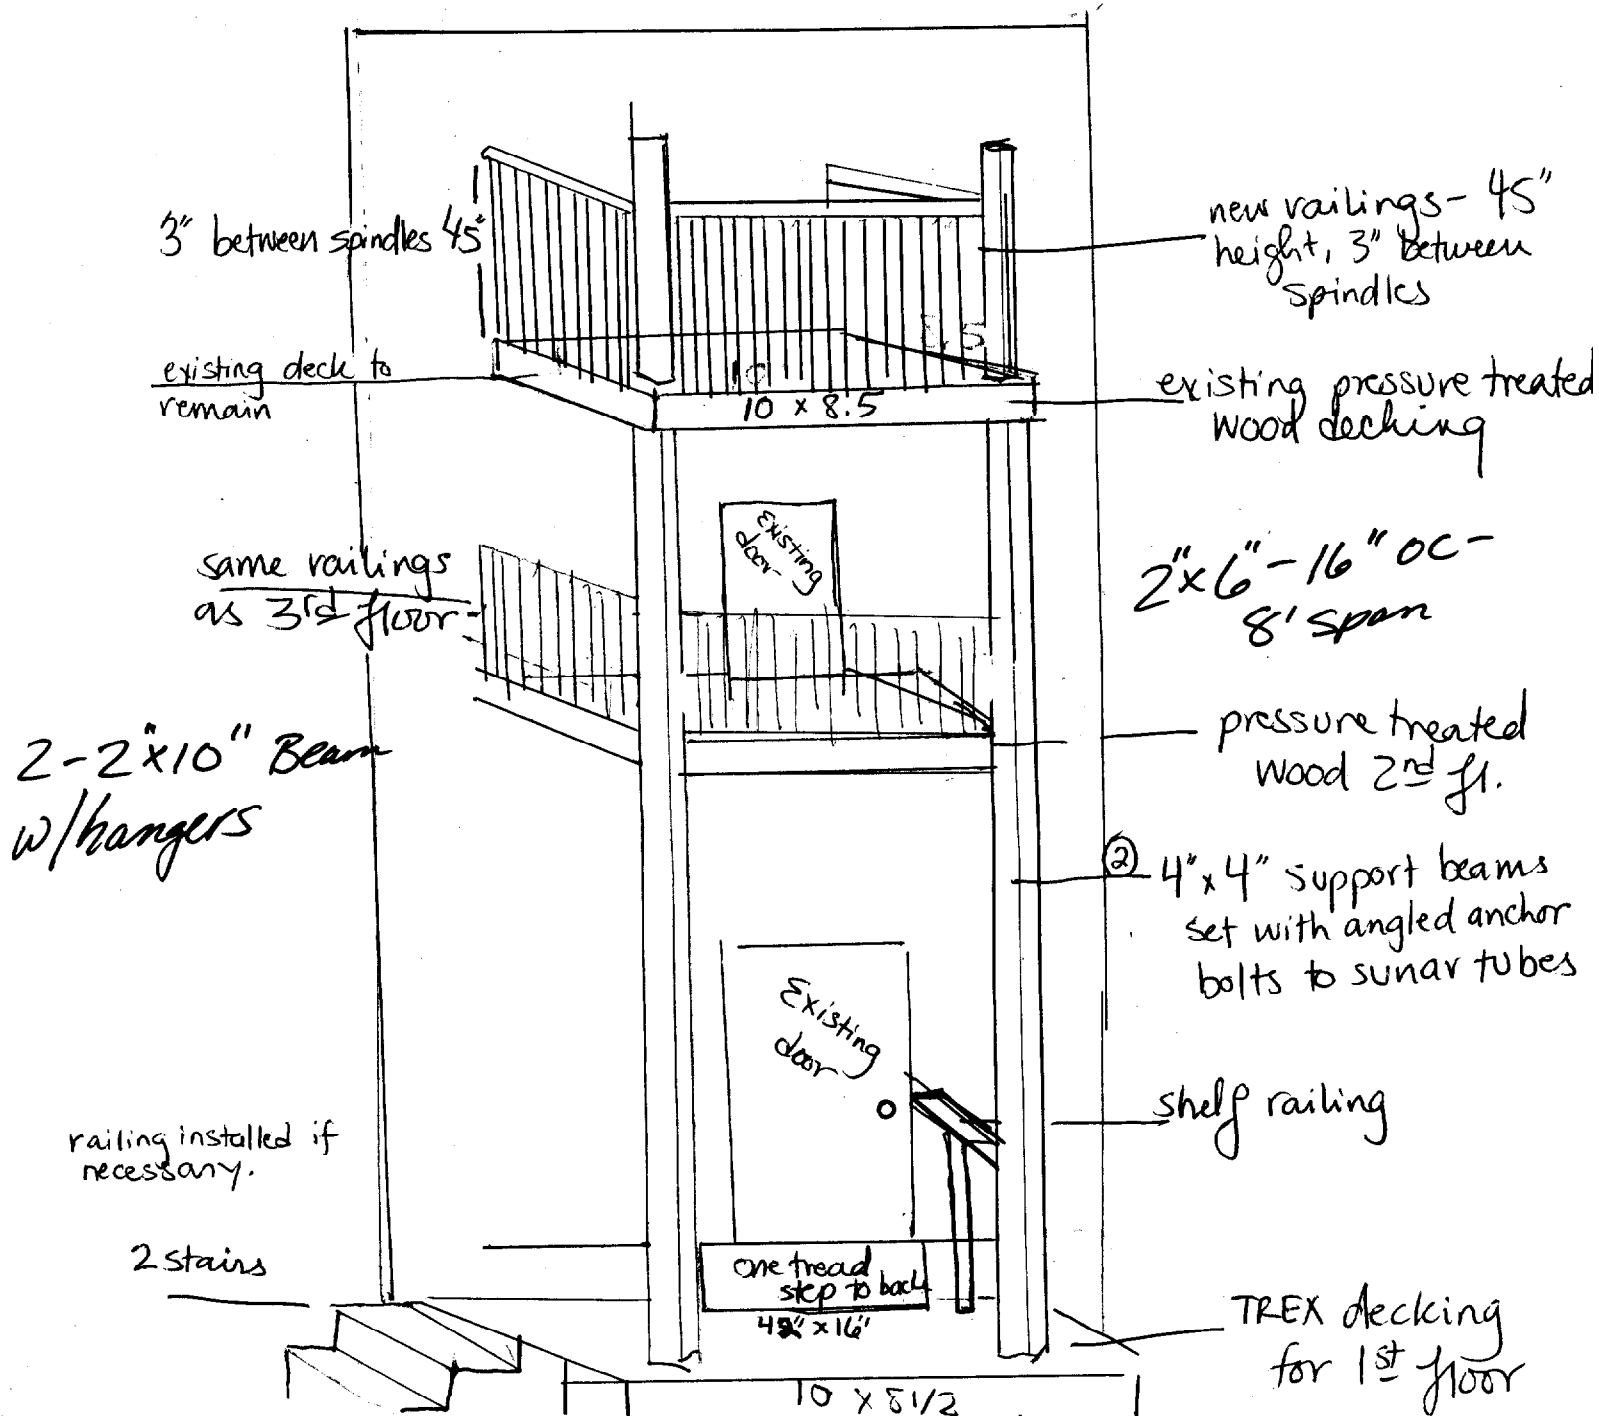 3" between spindles 45"
new railings- 45"
height, 3" between
spindles
existing deck to
remain
10 x 8.5
existing pressure treated
wood decking
Existing
door
same railings
as 3rd floor
2"x6"-16" OC-
8' span
2-2"x10" Beam
w/hangers
pressure treated
wood 2nd fl.
② 4"x4" support beams
set with angled anchor
bolts to sunar tubes
Existing
door
shelf railing
railing installed if
necessary.
2 stairs
one tread
step to back
x 16"
TREX decking
for 1st floor
10 x 8 1/2